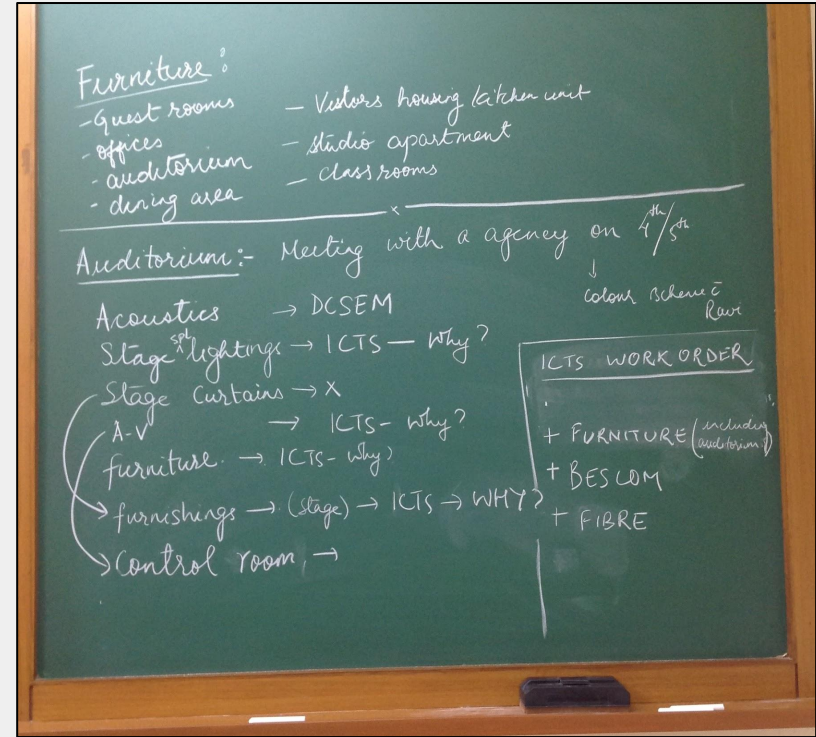 Furniture:
- Guest rooms
- offices
- auditorium
- dining area
- Visitors housing kitchen unit
- studio apartment
- class rooms
x
Auditorium:- Meeting with a agency on 4th/5th
↓
Colour scheme c̄
Ravi
Acoustics → DCSEM
Stage spl lightings → ICTS — Why?
Stage Curtains → X
A-V → ICTS - Why?
furniture → ICTS - Why?
furnishings → (stage) → ICTS → WHY?
Control room →
ICTS WORK ORDER
+ FURNITURE (including auditorium?)
+ BESCOM
+ FIBRE